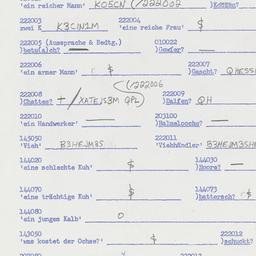 'ein reicher Mann' KOSCN (/222002
222003 222004
zwei K K3CIN1M 'eine reiche Frau' $
222005 (Aussprache & Bedtg.) 010022
)betu!ach? — )Gewfer? —
222006 222007
'ein armer Mann' $ )Gascht? QHESSI
(/222006
222008 222009
)Chattes? + /XATEJS3M QPL) )Dalfen? QH
222010 203100
'ein Handwerker' — )Balmaloochm? —
145050 222011
'Vieh' B3HEJM3S 'Viehhändler' B3HEJM3SH
144020 144030
'eine schlechte Kuh' $ )Rocre? —
144070 144073
'eine trächtige Kuh' $ )battersch? $
144080
'ein junges Kalb' 0
143050 222012
'was kostet der Ochse?' $ )schuckt?